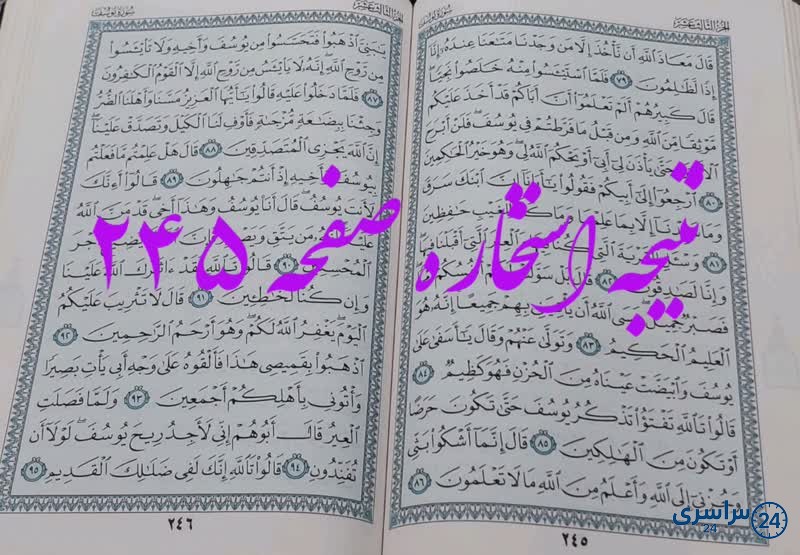 الجزء الثالث عشر
سورة يوسف
قَالَ مَعَاذَ ٱللَّهِ أَن نَّأْخُذَ إِلَّا مَن وَجَدْنَا مَتَٰعَنَا عِندَهُۥٓ إِنَّآ
إِذًا لَّظَٰلِمُونَ ٧٩ فَلَمَّا ٱسْتَيْـَٔسُوا۟ مِنْهُ خَلَصُوا۟ نَجِيًّا
قَالَ كَبِيرُهُمْ أَلَمْ تَعْلَمُوٓا۟ أَنَّ أَبَاكُمْ قَدْ أَخَذَ عَلَيْكُم
مَّوْثِقًا مِّنَ ٱللَّهِ وَمِن قَبْلُ مَا فَرَّطتُمْ فِى يُوسُفَ فَلَنْ أَبْرَحَ
حَتَّىٰ يَأْذَنَ لِىٓ أَبِىٓ أَوْ يَحْكُمَ ٱللَّهُ لِى وَهُوَ خَيْرُ ٱلْحَٰكِمِينَ
٨٠ ٱرْجِعُوٓا۟ إِلَىٰٓ أَبِيكُمْ فَقُولُوا۟ يَٰٓأَبَانَآ إِنَّ ٱبْنَكَ سَرَقَ
وَمَا إِلَّا بِمَا عَلِمْنَا وَمَا لِلْغَيْبِ حَٰفِظِينَ
٨١ ٱلْقَرْيَةَ ٱلَّتِى كُنَّا ٱلَّتِىٓ أَقْبَلْنَا فِيهَا
وَإِنَّا لَصَٰدِقُونَ ٨٢ قَالَ بَلْ سَوَّلَتْ أَنفُسُكُمْ
فَصَبْرٌ جَمِيلٌ عَسَى ٱللَّهُ أَن بِهِمْ جَمِيعًا إِنَّهُۥ هُوَ
ٱلْعَلِيمُ ٱلْحَكِيمُ ٨٣ وَتَوَلَّىٰ عَنْهُمْ وَقَالَ يَٰٓأَسَفَىٰ عَلَىٰ
يُوسُفَ وَٱبْيَضَّتْ عَيْنَاهُ مِنَ ٱلْحُزْنِ فَهُوَ كَظِيمٌ ٨٤
قَالُوا۟ تَٱللَّهِ تَفْتَؤُا۟ تَذْكُرُ يُوسُفَ حَتَّىٰ تَكُونَ حَرَضًا
أَوْ تَكُونَ مِنَ ٱلْهَٰلِكِينَ ٨٥ قَالَ إِنَّمَآ أَشْكُوا۟ بَثِّى
وَحُزْنِىٓ إِلَى ٱللَّهِ وَأَعْلَمُ مِنَ ٱللَّهِ مَا لَا تَعْلَمُونَ ٨٦
٢٤٥
الجزء الثالث عشر
سورة يوسف
يَٰبَنِىَّ ٱذْهَبُوا۟ فَتَحَسَّسُوا۟ مِن يُوسُفَ وَأَخِيهِ وَلَا تَا۟يْـَٔسُوا۟
مِن رَّوْحِ ٱللَّهِ إِنَّهُۥ لَا يَا۟يْـَٔسُ مِن رَّوْحِ ٱللَّهِ إِلَّا ٱلْقَوْمُ ٱلْكَٰفِرُونَ
٨٧ فَلَمَّا دَخَلُوا۟ عَلَيْهِ قَالُوا۟ يَٰٓأَيُّهَا ٱلْعَزِيزُ مَسَّنَا وَأَهْلَنَا ٱلضُّرُّ
وَجِئْنَا بِبِضَٰعَةٍ مُّزْجَىٰةٍ فَأَوْفِ لَنَا ٱلْكَيْلَ وَتَصَدَّقْ عَلَيْنَآ
إِنَّ ٱللَّهَ يَجْزِى ٱلْمُتَصَدِّقِينَ ٨٨ قَالَ هَلْ عَلِمْتُم مَّا فَعَلْتُم
بِيُوسُفَ وَأَخِيهِ إِذْ أَنتُمْ جَٰهِلُونَ ٨٩ قَالُوٓا۟ أَءِنَّكَ
لَأَنتَ يُوسُفُ قَالَ أَنَا۠ يُوسُفُ وَهَٰذَآ أَخِى قَدْ مَنَّ ٱللَّهُ
عَلَيْنَآ مَن يَتَّقِ
ٱلْمُحْسِنِينَ ٩٠ قَالُوا۟ تَٱللَّهِ لَقَدْ ءَاثَرَكَ ٱللَّهُ عَلَيْنَا
وَإِن كُنَّا لَخَٰطِـِٔينَ ٩١ قَالَ لَا تَثْرِيبَ عَلَيْكُمُ
ٱلْيَوْمَ يَغْفِرُ ٱللَّهُ لَكُمْ وَهُوَ أَرْحَمُ ٱلرَّٰحِمِينَ ٩٢
ٱذْهَبُوا۟ بِقَمِيصِى هَٰذَا فَأَلْقُوهُ عَلَىٰ وَجْهِ أَبِى يَأْتِ بَصِيرًا
وَأْتُونِى بِأَهْلِكُمْ أَجْمَعِينَ ٩٣ وَلَمَّا فَصَلَتِ
ٱلْعِيرُ قَالَ أَبُوهُمْ إِنِّى لَأَجِدُ رِيحَ يُوسُفَ لَوْلَآ أَن
تُفَنِّدُونِ ٩٤ قَالُوا۟ تَٱللَّهِ إِنَّكَ لَفِى ضَلَٰلِكَ ٱلْقَدِيمِ ٩٥
٢٤٦
نتیجه استخاره صفحه ۲۴۵
سراسری
24
24